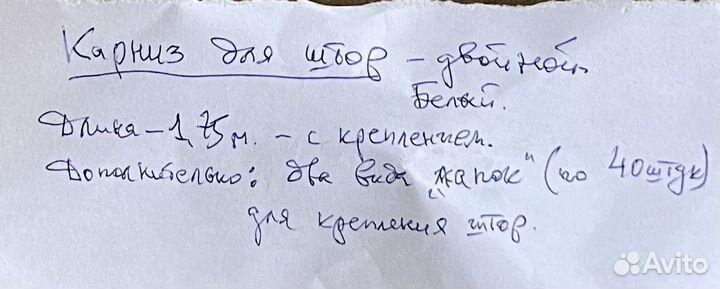 Карниз для штор - двойной.
Белый.
Длина - 1,75 м. - с креплением.
Дополнительно: два вида "лапок" (по 40 штук)
для крепления штор.
Avito